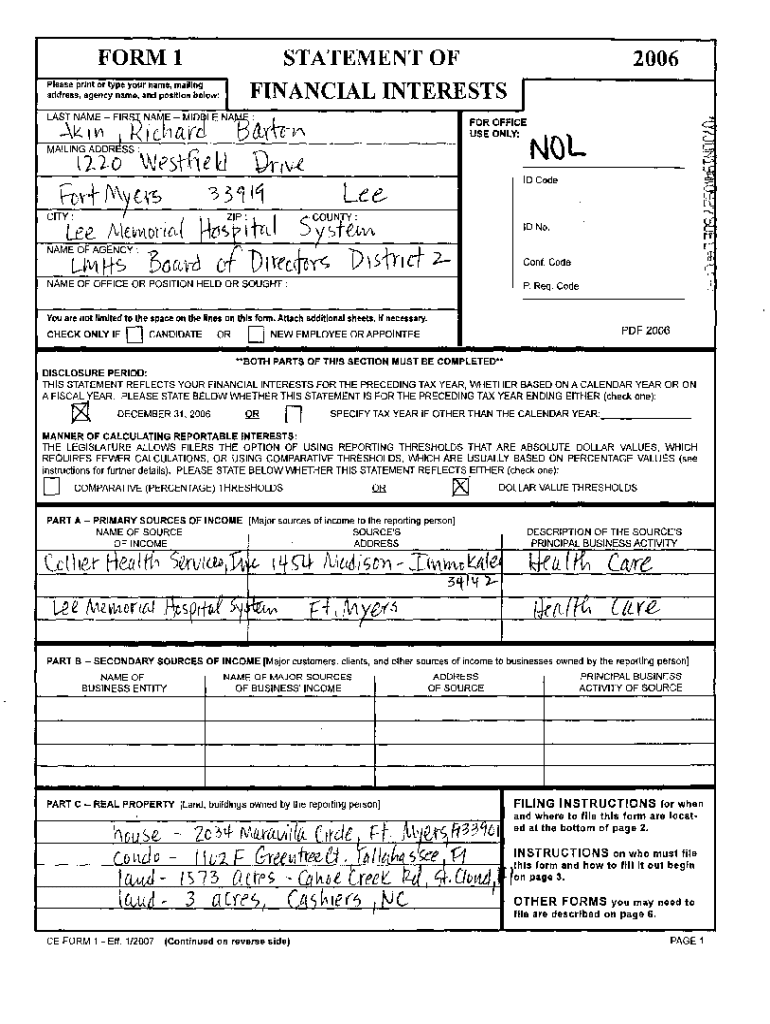 FORM 1
STATEMENT OF
FINANCIAL INTERESTS
2006
Please print or type your name, mailing
address, agency name, and position below:
LAST NAME – FIRST NAME – MIDDLE NAME :
Akin, Richard Barton
MAILING ADDRESS :
1220 Westfield Drive
Fort Myers 33919 Lee
CITY : ZIP : COUNTY :
Lee Memorial Hospital System
NAME OF AGENCY :
LMHS Board of Directors District 2
NAME OF OFFICE OR POSITION HELD OR SOUGHT :
You are not limited to the space on the lines on this form. Attach additional sheets, if necessary.
CHECK ONLY IF CANDIDATE OR NEW EMPLOYEE OR APPOINTEE
FOR OFFICE
USE ONLY:
NOL
ID Code
ID No.
Conf. Code
P. Req. Code
PDF 2006
**BOTH PARTS OF THIS SECTION MUST BE COMPLETED**
DISCLOSURE PERIOD:
THIS STATEMENT REFLECTS YOUR FINANCIAL INTERESTS FOR THE PRECEDING TAX YEAR, WHETHER BASED ON A CALENDAR YEAR OR ON
A FISCAL YEAR. PLEASE STATE BELOW WHETHER THIS STATEMENT IS FOR THE PRECEDING TAX YEAR ENDING EITHER (check one):
DECEMBER 31, 2006 OR SPECIFY TAX YEAR IF OTHER THAN THE CALENDAR YEAR:
MANNER OF CALCULATING REPORTABLE INTERESTS:
THE LEGISLATURE ALLOWS FILERS THE OPTION OF USING REPORTING THRESHOLDS THAT ARE ABSOLUTE DOLLAR VALUES, WHICH
REQUIRES FEWER CALCULATIONS, OR USING COMPARATIVE THRESHOLDS, WHICH ARE USUALLY BASED ON PERCENTAGE VALUES (see
instructions for further details). PLEASE STATE BELOW WHETHER THIS STATEMENT REFLECTS EITHER (check one):
COMPARATIVE (PERCENTAGE) THRESHOLDS OR DOLLAR VALUE THRESHOLDS
PART A – PRIMARY SOURCES OF INCOME [Major sources of income to the reporting person]
NAME OF SOURCE SOURCE'S DESCRIPTION OF THE SOURCE'S
OF INCOME ADDRESS PRINCIPAL BUSINESS ACTIVITY
Collier Health Services, Inc 1454 Madison - Immokalee Health Care
34142
Lee Memorial Hospital System Ft. Myers Health Care
PART B – SECONDARY SOURCES OF INCOME [Major customers, clients, and other sources of income to businesses owned by the reporting person]
NAME OF NAME OF MAJOR SOURCES ADDRESS PRINCIPAL BUSINESS
BUSINESS ENTITY OF BUSINESS' INCOME OF SOURCE ACTIVITY OF SOURCE
PART C – REAL PROPERTY [Land, buildings owned by the reporting person]
house - 2034 Maravilla Circle, Ft. Myers, Fl 33901
condo - 1102 F Greentree Ct. Tallahassee, Fl
land - 1573 acres - Canoe Creek Rd, St. Cloud, Fl
land - 3 acres, Cashiers, NC
FILING INSTRUCTIONS for when
and where to file this form are locat-
ed at the bottom of page 2.
INSTRUCTIONS on who must file
this form and how to fill it out begin
on page 3.
OTHER FORMS you may need to
file are described on page 6.
CE FORM 1 - Eff. 1/2007 (Continued on reverse side) PAGE 1